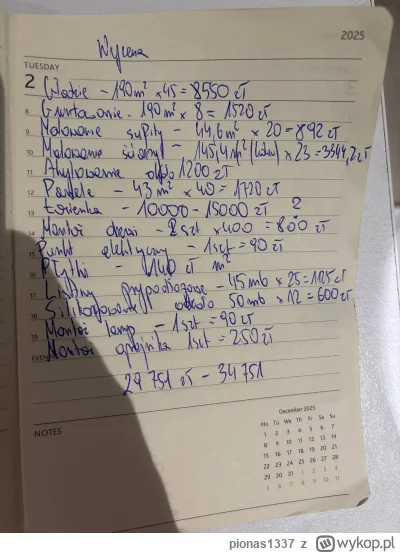 2025
Wycena
TUESDAY
2 Gładzie - 190 m² x 45 = 8550 zł
8 Gruntowanie - 190 m² x 8 = 1520 zł
9 Malowanie sufity - 44,6 m² x 20 = 892 zł
10 Malowanie ściany - 145,4 m² (kolor) x 23 = 3344,2 zł
11 Akrylowanie około 1200 zł
12 Panele - 43 m² x 40 = 1720 zł
13 Łazienka - 10000 - 15000 zł ?
14 Montaż drzwi - 2 szt x 400 = 800 zł
15 Punkt elektryczny - 1 szt = 90 zł
16 Płytki - 140 zł m²
17 Listwy przypodłogowe - 45 mb x 25 = 1125 zł
18 Silikonowanie około 50 mb x 12 = 600 zł
Montaż lamp - 1 szt = 90 zł
19 Montaż grzejnika 1 szt = 250 zł
EVENI
29 751 zł - 34 751
NOTES
December 2025
Mo Tu We Th Fr Sa Su
1 2 3 4 5 6 7
8 9 10 11 12 13 14
15 16 17 18 19 20 21
22 23 24 25 26 27 28
29 30 31 1 2 3 4
5 6 7 8 9 10 11
pionas1337 z wykop.pl